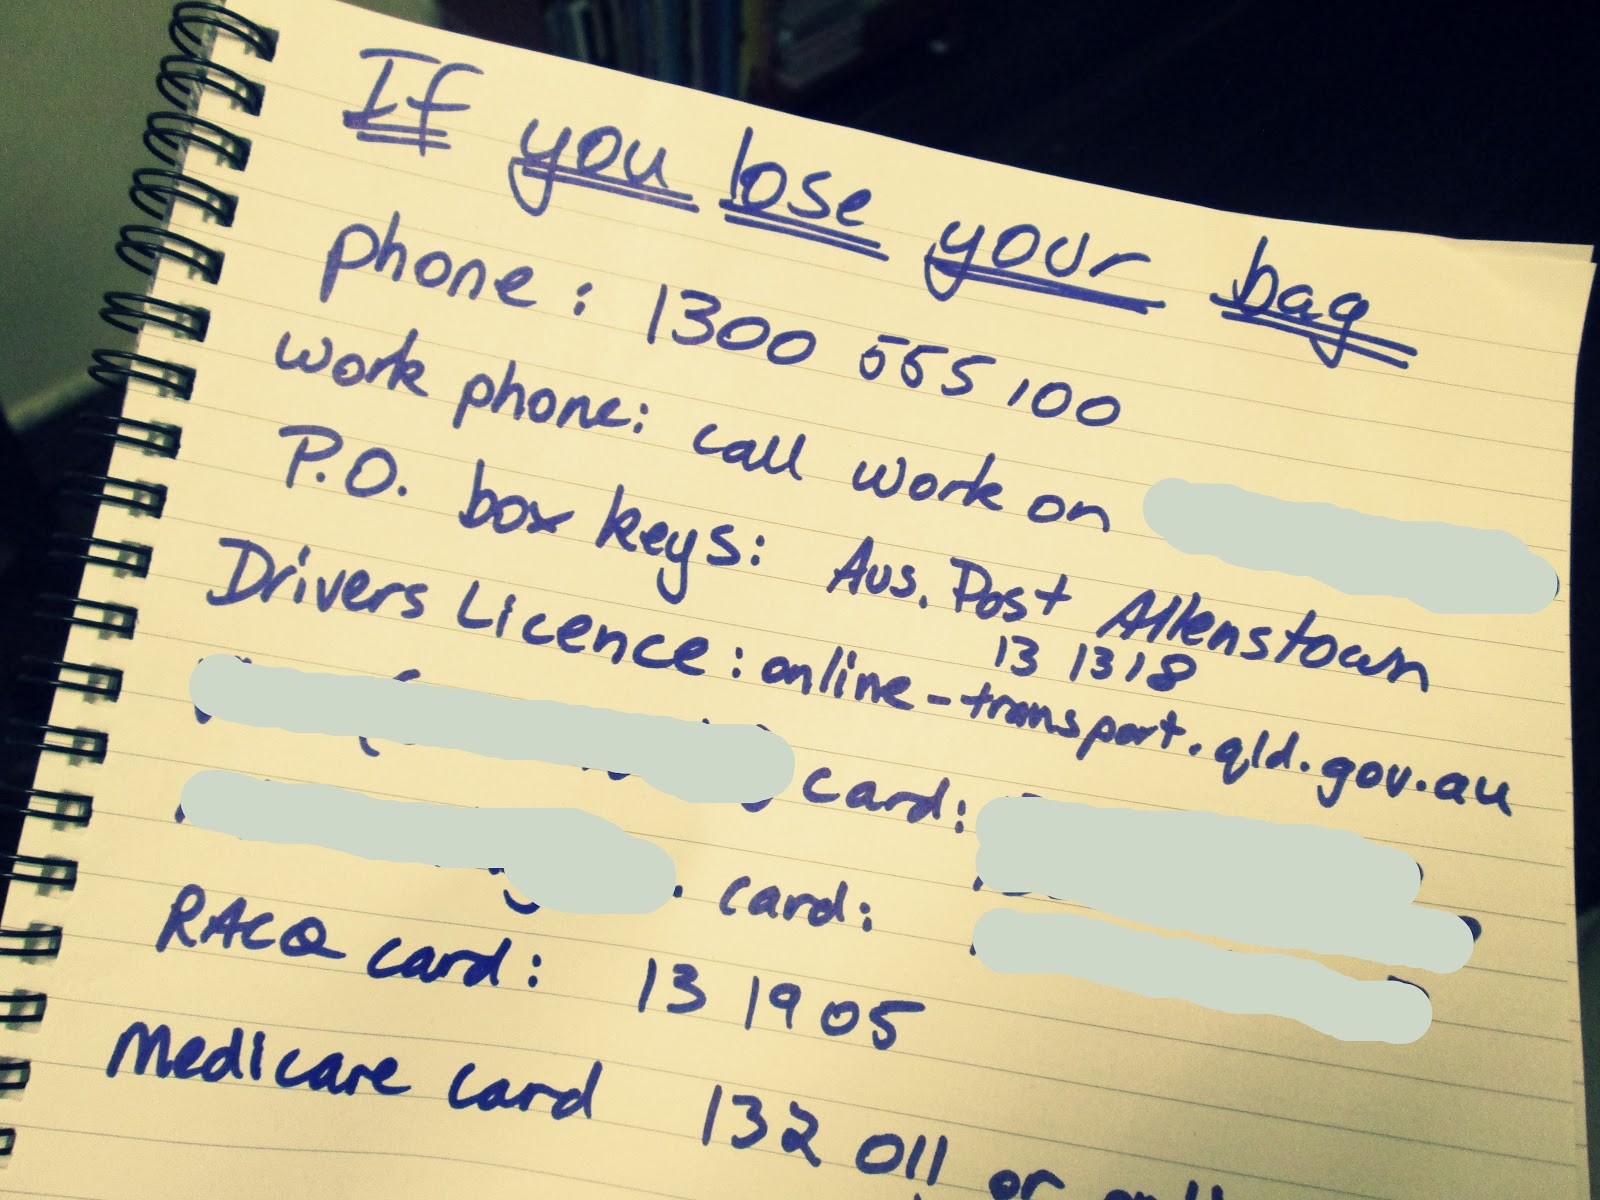 If you lose your bag
phone: 1300 555 100
work phone: call work on
P.O. box keys: Aus. Post Allenstown
13 13 18
Drivers Licence: online - transport.qld.gov.au
card:
card:
RACQ card: 13 19 05
Medicare card 132 011 or